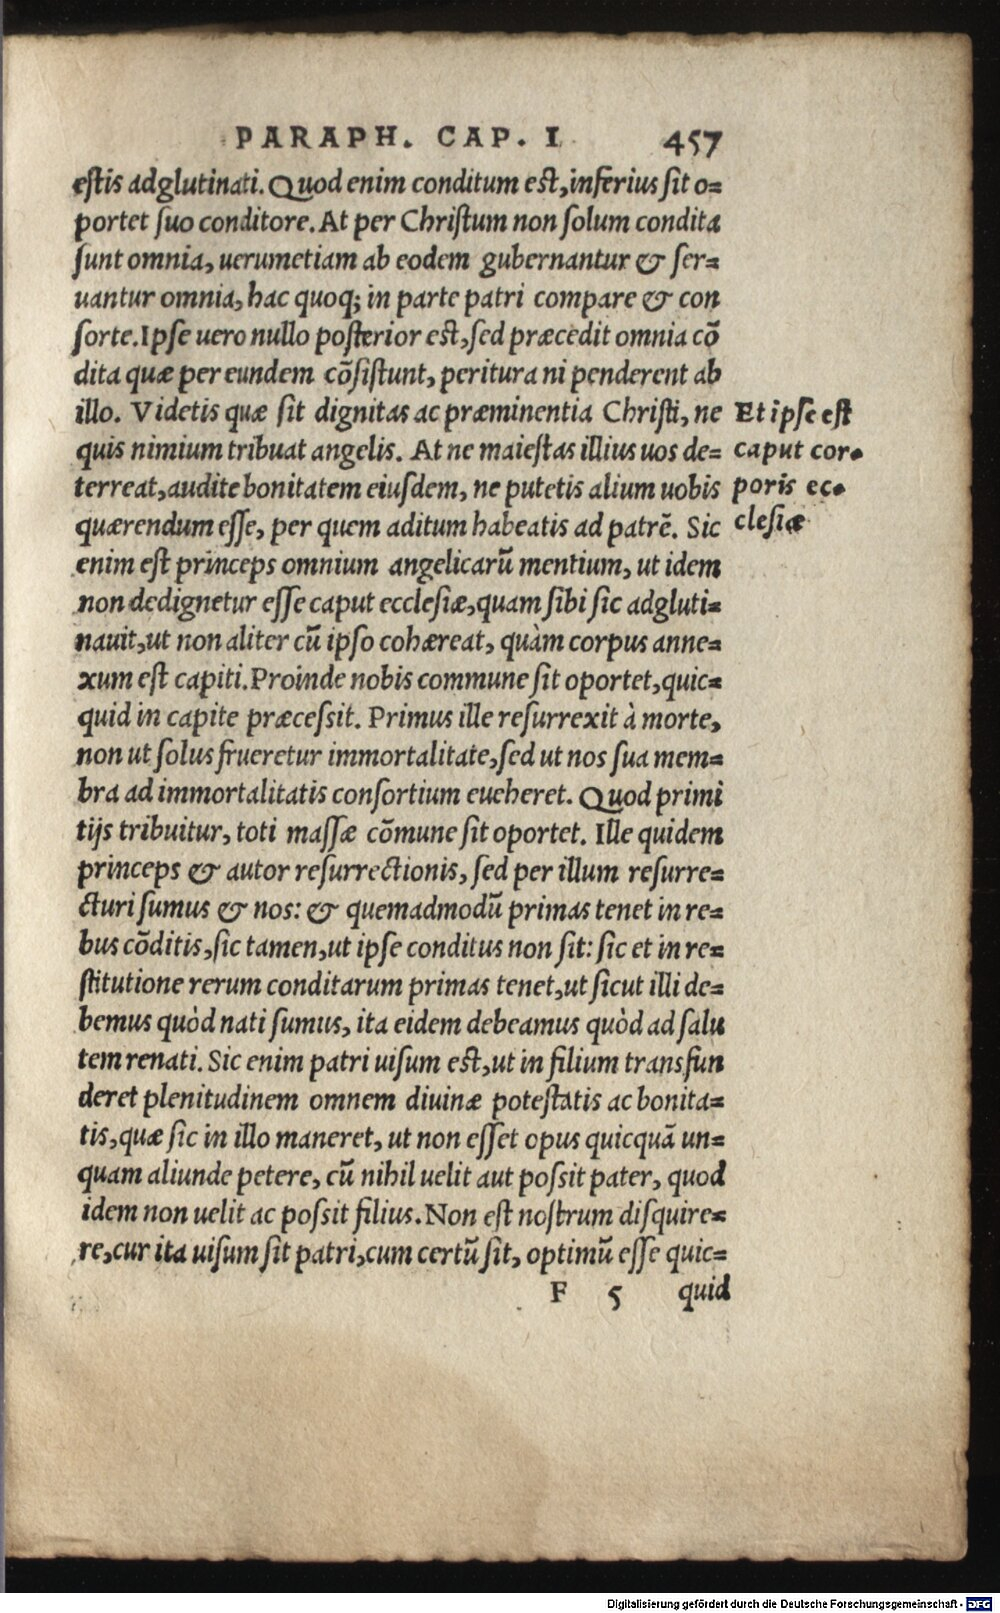 PARAPH. CAP. I 457
estis adglutinati. Quod enim conditum est, inferius sit o=
portet suo conditore. At per Christum non solum condita
sunt omnia, uerumetiam ab eodem gubernantur & ser=
uantur omnia, hac quoq; in parte patri compare & con
sorte. Ipse uero nullo posterior est, sed præcedit omnia cō
dita quæ per eundem cōsistunt, peritura ni penderent ab
illo. Videtis quæ sit dignitas ac præminentia Christi, ne
quis nimium tribuat angelis. At ne maiestas illius uos de=
terreat, audite bonitatem eiusdem, ne putetis alium uobis
quærendum esse, per quem aditum habeatis ad patrē. Sic
enim est princeps omnium angelicarū mentium, ut idem
non dedignetur esse caput ecclesiæ, quam sibi sic adgluti=
nauit, ut non aliter cū ipso cohæreat, quàm corpus anne=
xum est capiti. Proinde nobis commune sit oportet, quic=
quid in capite præcessit. Primus ille resurrexit à morte,
non ut solus frueretur immortalitate, sed ut nos sua mem=
bra ad immortalitatis consortium eueheret. Quod primi
tijs tribuitur, toti massæ cōmune sit oportet. Ille quidem
princeps & autor resurrectionis, sed per illum resurre=
cturi sumus & nos: & quemadmodū primas tenet in re=
bus cōditis, sic tamen, ut ipse conditus non sit: sic et in re=
stitutione rerum conditarum primas tenet, ut sicut illi de=
bemus quòd nati sumus, ita eidem debeamus quòd ad salu
tem renati. Sic enim patri uisum est, ut in filium transfun
deret plenitudinem omnem diuinæ potestatis ac bonita=
tis, quæ sic in illo maneret, ut non esset opus quicquā un=
quam aliunde petere, cū nihil uelit aut possit pater, quod
idem non uelit ac possit filius. Non est nostrum disquire=
re, cur ita uisum sit patri, cum certū sit, optimū esse quic=
F 5 quid
Et ipse est
caput cor=
poris ec=
clesiæ
Digitalisierung gefördert durch die Deutsche Forschungsgemeinschaft - DFG